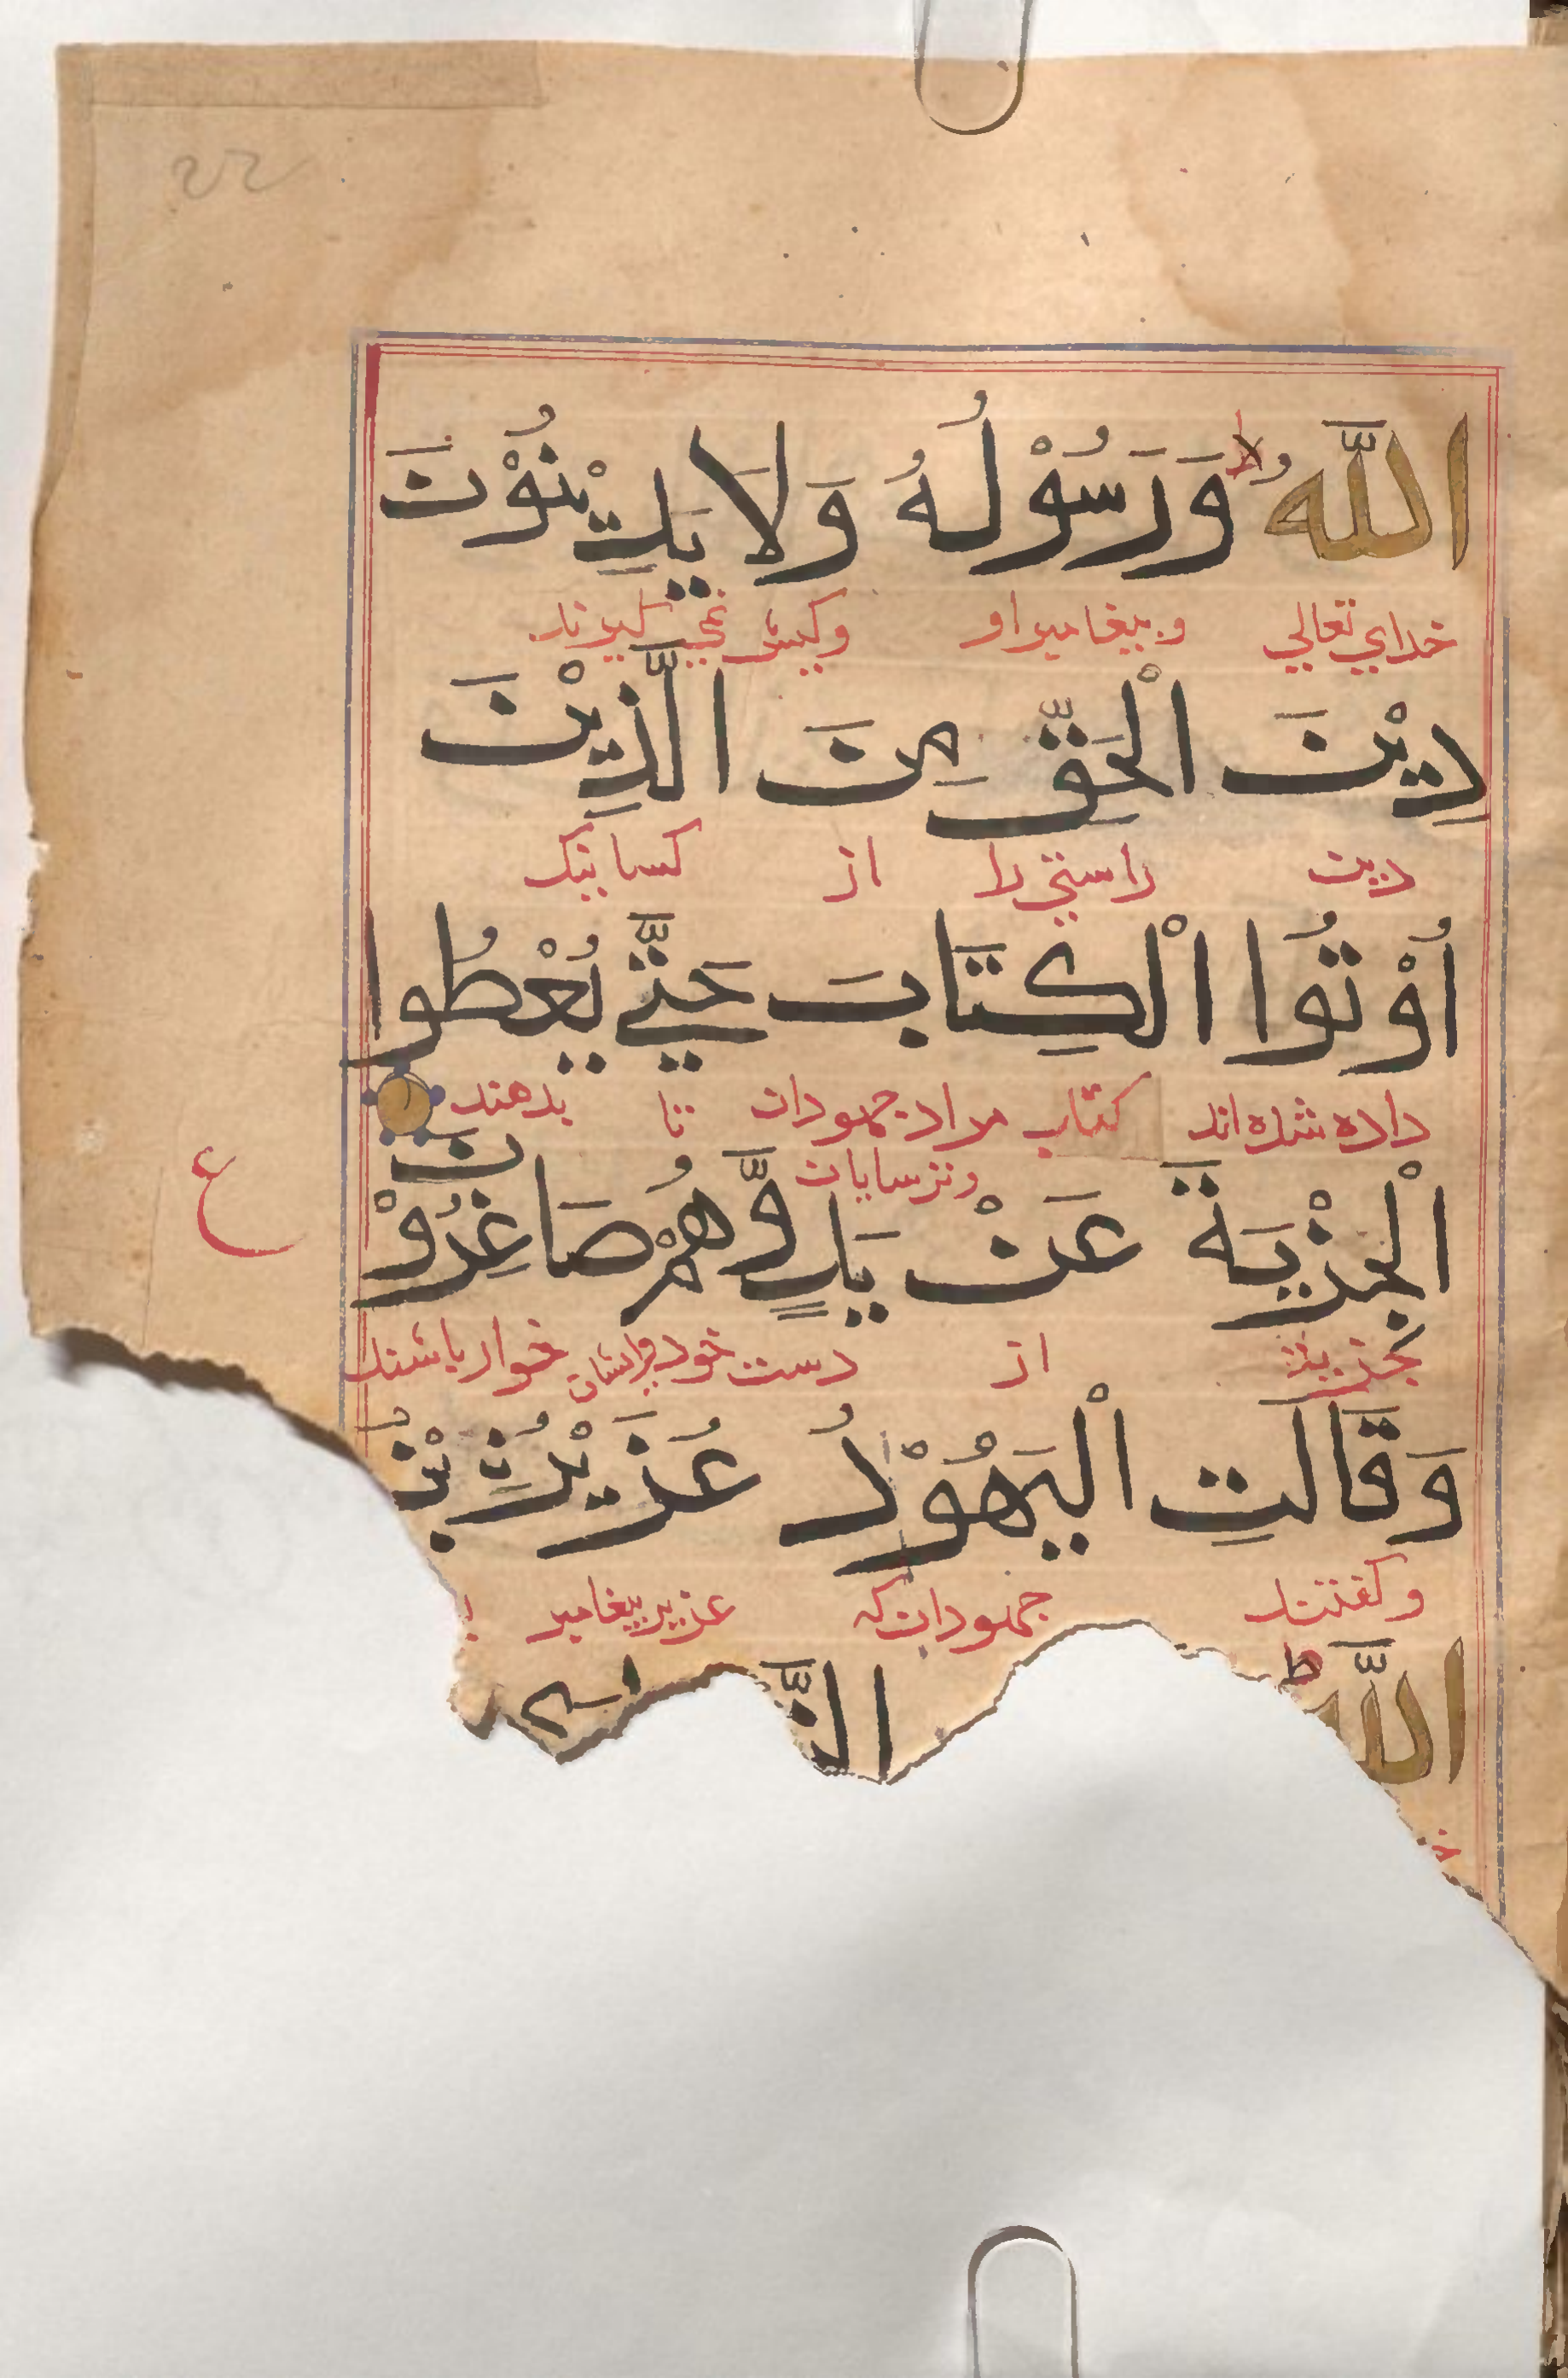 اللّٰهُ وَرَسُوْلُهُ وَلَا يَدِيْنُوْنَ
خدای تعالی وپیغامبر او وکیش نمی گیرند
دِيْنَ الْحَقِّ مِنَ الَّذِيْنَ
دین راستی را از کسانیک
اُوْتُوا الْكِتَابَ حَتّٰى يُعْطُوا
داده شده اند کتاب مراد جهودان تا بدهند
وترسایان
الْجِزْيَةَ عَنْ يَدٍ وَّهُمْ صَاغِرُوْنَ
ع
جزیه از دست خود وایشان خوار باشند
وَقَالَتِ الْيَهُوْدُ عُزَيْرُنِ بْنُ
وگفتند جهودان که عزیر پیغامبر
اللّٰهِ ط